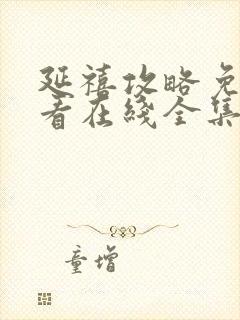 延禧攻略免
看在线全集
童增